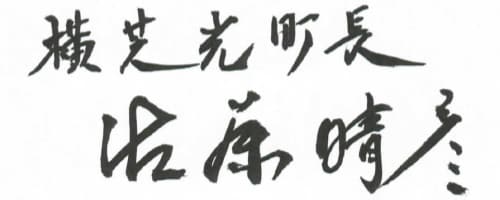 横芝光町長
佐藤晴彦